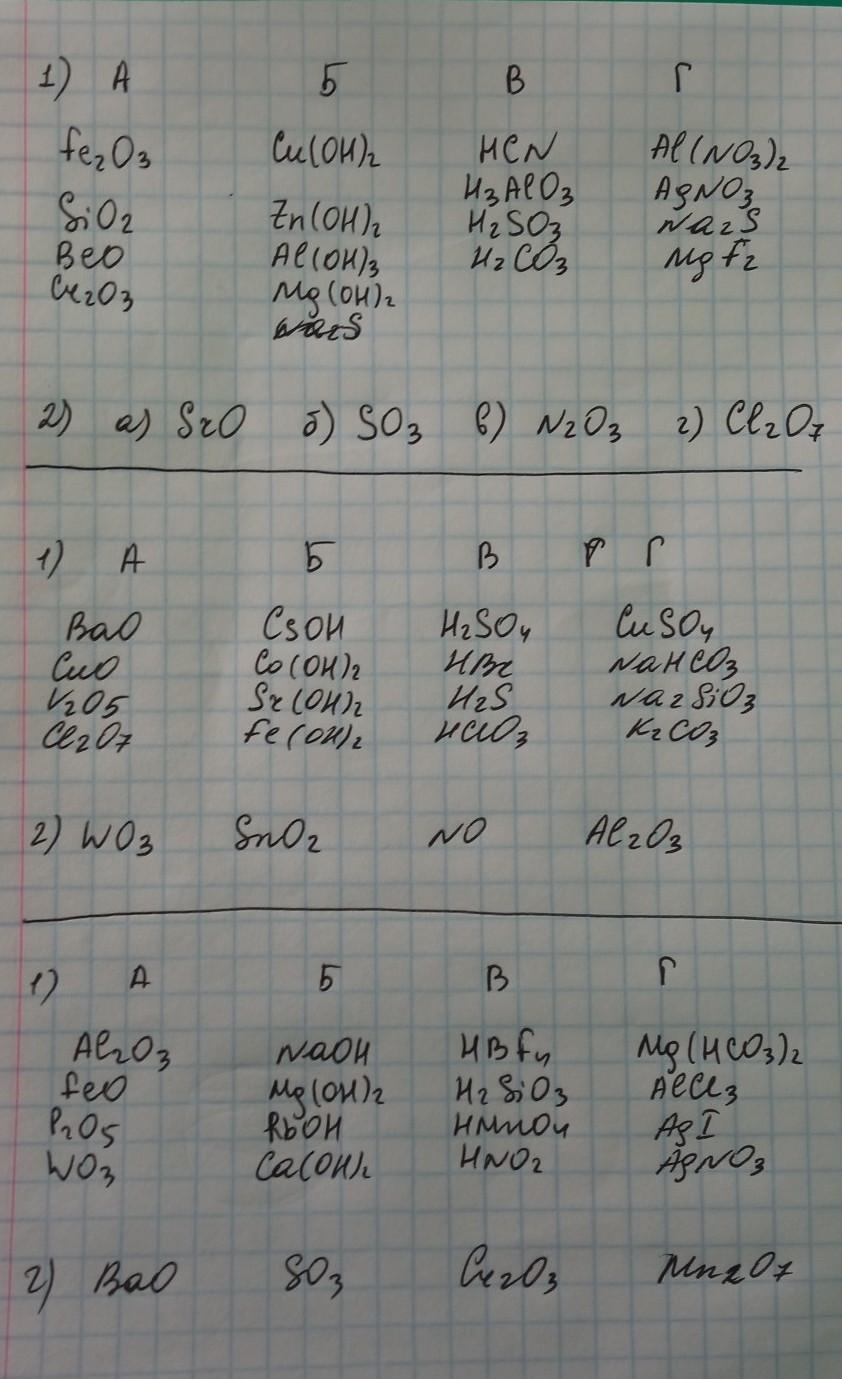 1) А Б В Г
Fe₂O₃ Cu(OH)₂ HCN Al(NO₃)₂
H₃AlO₃ AgNO₃
SiO₂ Zn(OH)₂ H₂SO₃ Na₂S
BeO Al(OH)₃ H₂CO₃ MgF₂
Cr₂O₃ Mg(OH)₂
Na₂S
2) а) SrO б) SO₃ в) N₂O₃ г) Cl₂O₇
1) А Б В Г Г
BaO CsOH H₂SO₄ CuSO₄
CuO Co(OH)₂ HBr NaHCO₃
V₂O₅ Sr(OH)₂ H₂S Na₂SiO₃
Cl₂O₇ Fe(OH)₂ HClO₃ K₂CO₃
2) WO₃ SnO₂ NO Al₂O₃
1) А Б В Г
Al₂O₃ NaOH HBF₄ Mg(HCO₃)₂
FeO Mg(OH)₂ H₂SiO₃ AlCl₃
P₂O₅ RbOH HMnO₄ AgI
WO₃ Ca(OH)₂ HNO₂ AgNO₃
2) BaO SO₃ Cr₂O₃ Mn₂O₇